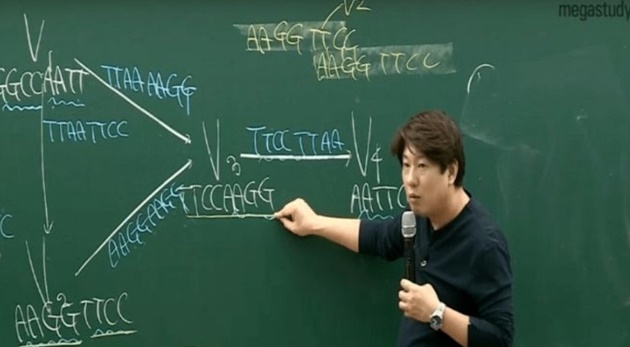 megastudy
V2
AAGG TTCC
AAGG TTCC
V
GGCCAATT
TTAA AAGG
TTAATTCC
V3
TTCC TTAA
V4
TTCCAAGG
AATTC
AAGGAAGG
V2
AAGG TTCC